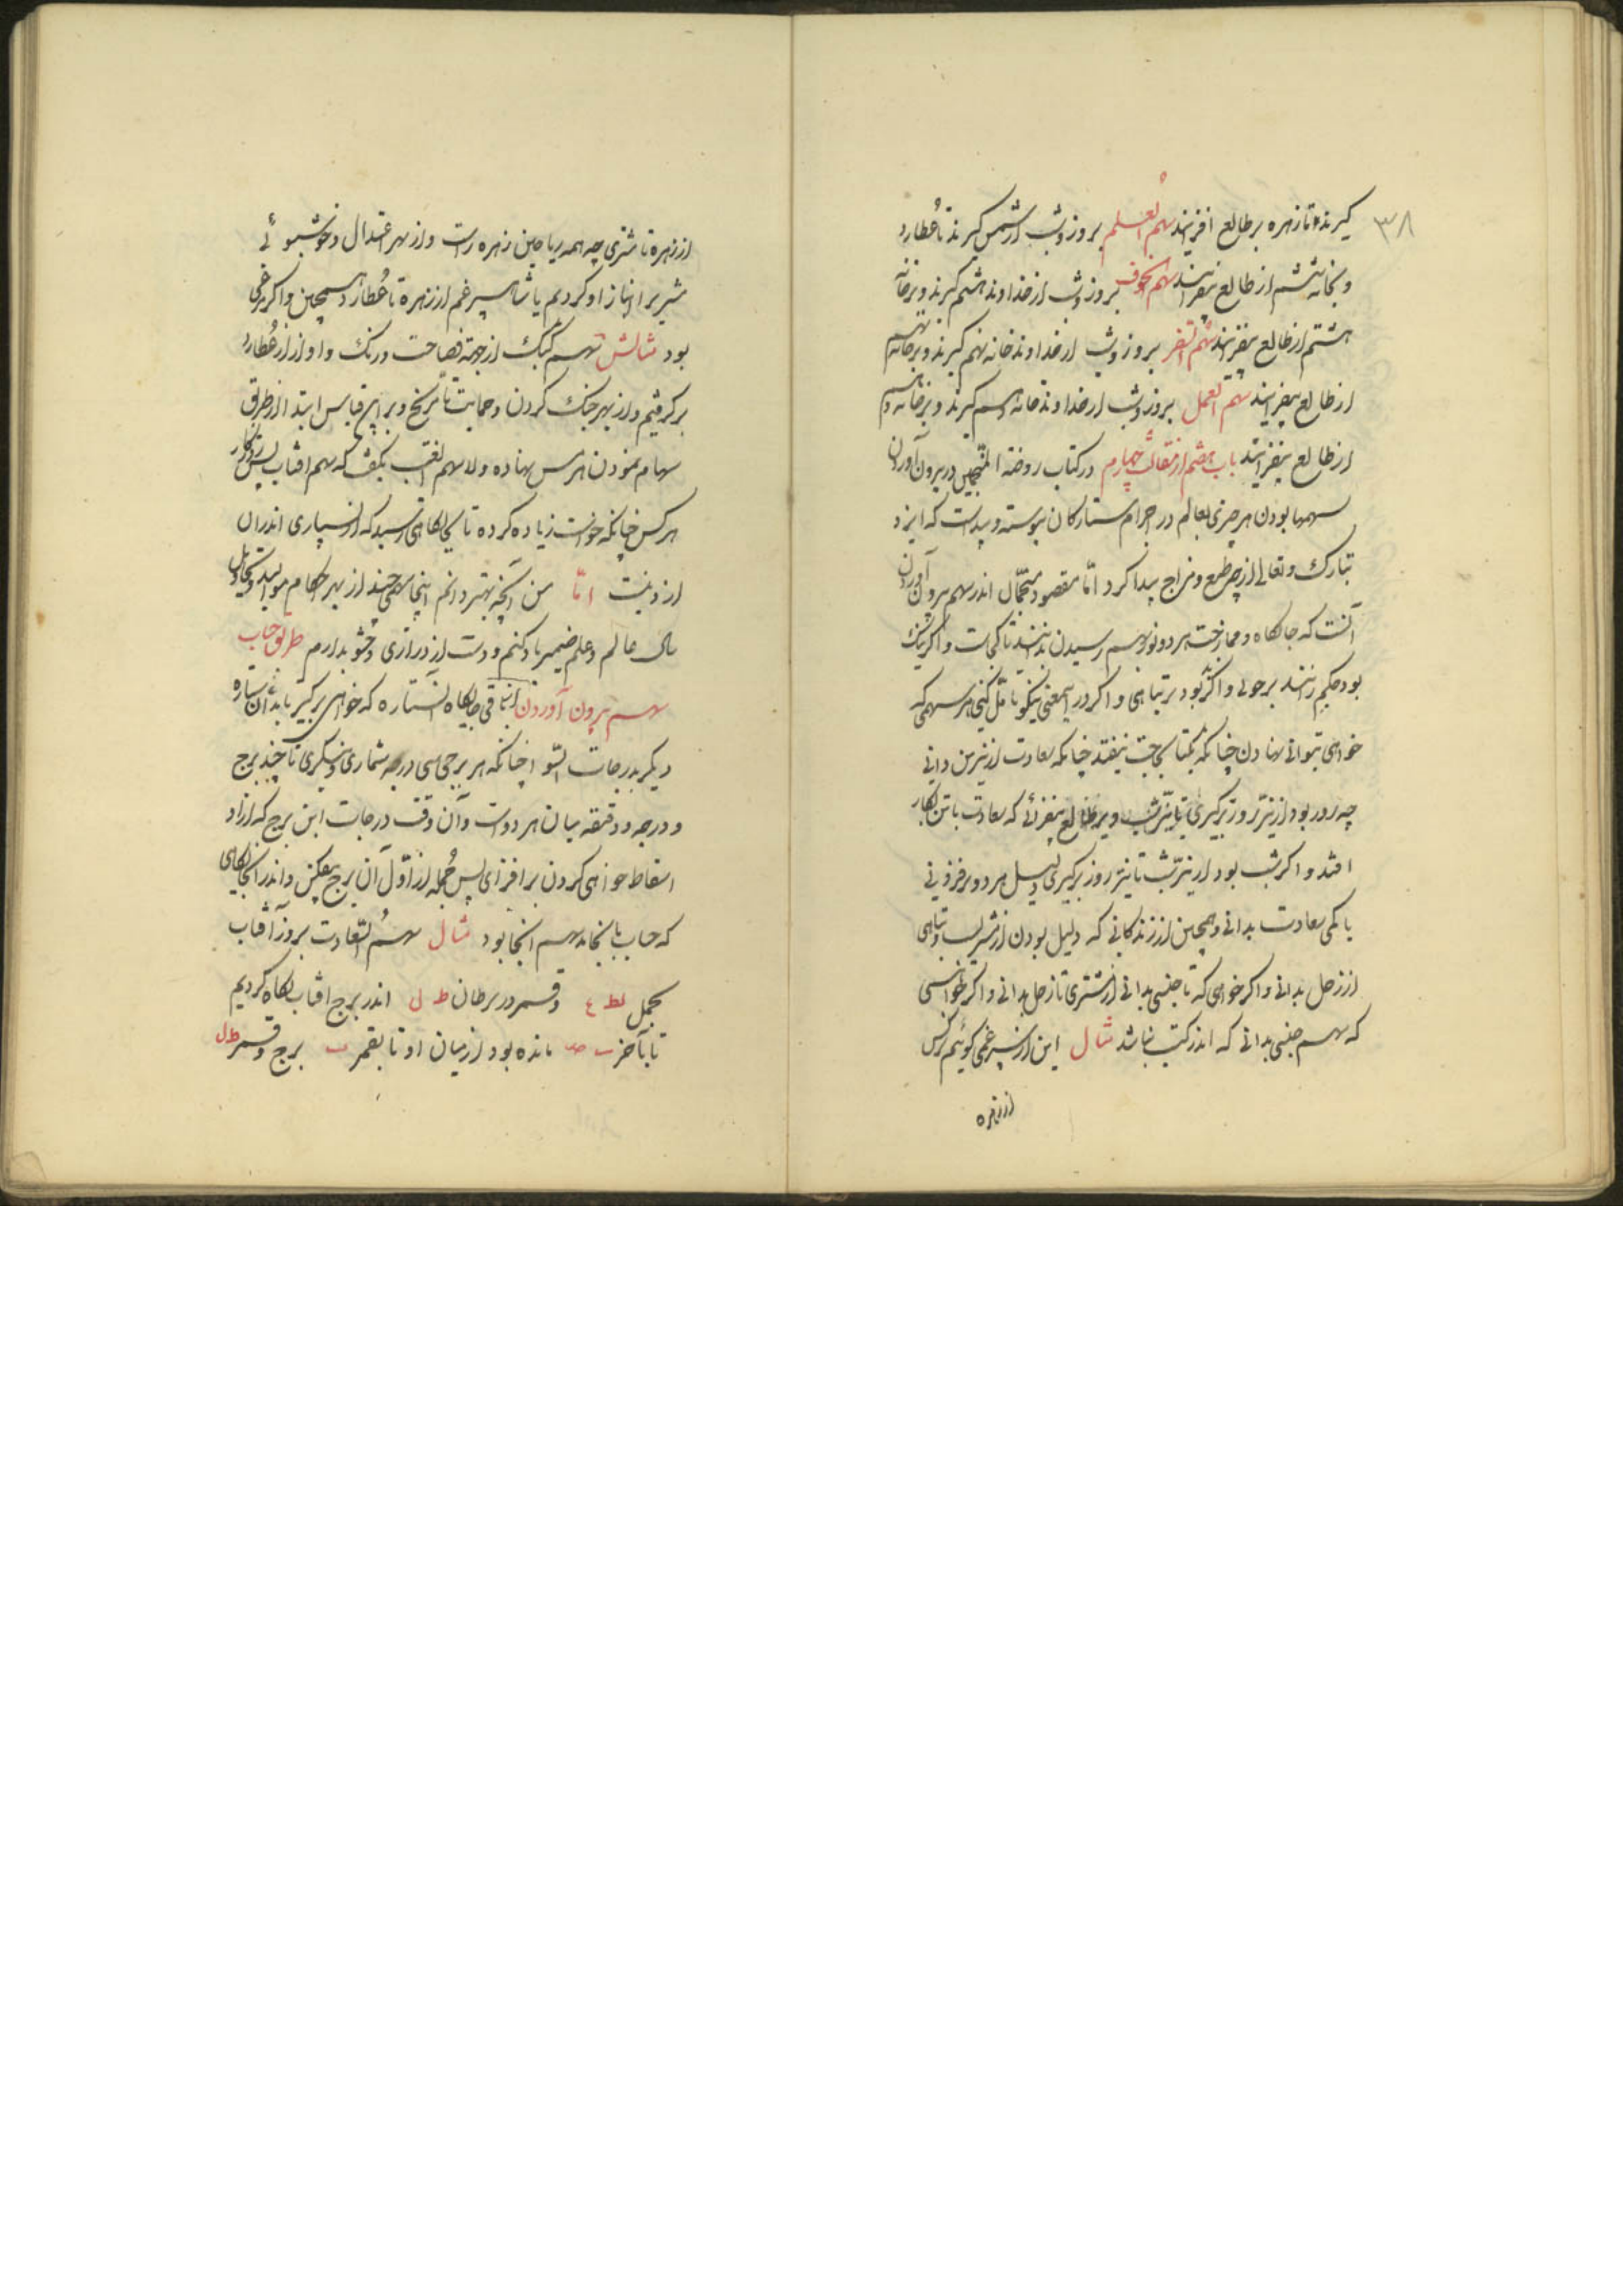 ۳۸
گیرند تا زهره بر طالع افزایند سهم العلم بروز و شب از شمس گیرند تا عطارد
و بخانه ششم از طالع بیفزایند سهم الخوف بروز و شب از خداوند هشتم گیرند و بر خانه
هشتم از طالع بیفزایند سهم السفر بروز و شب از خداوند خانه نهم گیرند و بر خانه نهم
از طالع بیفزایند سهم العمل بروز و شب از خداوند خانه دهم گیرند و بر خانه دهم
از طالع بیفزایند باب هشتم از مقالت چهارم در کتاب روضه المنجمین در بیرون آوردن
سهمها بودن هر چیزی بعالم در اجرام ستارگان پیوسته و پیداست که ایزد
تبارک و تعالی از هر طبع و مزاج پیدا کرد اما مقصود منجمان اندر سهم بیرون آوردن
آنست که جایگاه و ممازجت هر دو نور رسیدن بدانند تا کجاست و اگر نیک
بود حکم رانند بر خوبی و اگر بد بود بر تباهی و اگر در معنی نیکو تامل کنی هر سهمی که
خواهی بتوانی نهادن چنانکه بکتابی حاجت نیفتد چنانکه سعادت از نیرین دانی
چه روز بود از نیر روز برگیری تا نیر شب و بر طالع بیفزائی که سعادت با تن بکار
افتد و اگر شب بود از نیر شب تا نیر روز برگیری دلیل هر دو بر فزونی
یا کمی سعادت بدانی و همچنین از زندگانی که دلیل بودن از مشتریست و تباهی
از زحل بدانی و اگر خواهی که تا جنسی بدانی از مشتری تا زحل بدانی و اگر خواهی
که سهم جنسی بدانی که اندر کتب نباشد مثال این از سپرغمی گوئیم نرگس
از زهره
از زهره تا مشتری چه همه ریاحین زهره راست و از بهر اعتدال و خوشبوئی
مشتری را انباز او کردیم یا شاه سپرغم از زهره تا عطارد همچنین و اگر مرغی
بود مثالش سهم کبک از جهة فصاحت و رنگ و آواز از عطارد
برگرفتیم و از بهر جنگ کردن و حمایت تا مریخ و بر این قیاس ابتدا از طریق
سهام نمودن هرمس نهاده و سهم الغیب بگفت که سهم آفتاب پس روزگار
هر کس چنانکه خواست زیاده کرده تا بجایگاهی رسید که از بسیاری اندران
لذت نیست اما من آنچه بهتر دانم اینجا سهمی چند از بهر احکام موالید و تحاویل
سال عالم و علم ضمیر یاد کنم و دست از درازی و حشو بدارم طریق حساب
سهم بیرون آوردن باقی جایگاه آن ستاره که خواهی برگیر تا بدان ستاره
دیگر بدرجات السوا چنانکه هر برجی سی درجه شماری و بنگری تا چند برج
و درجه و دقیقه میان هر دو است و آن وقت درجات این برج که ازاو
اسقاط خواهی کردن بر افزای پس جمله از اول آن برج بیفکن و اندر آنجایگاهی
که حساب بآنجا رسد سهم آنجا بود مثال سهم السعادت بروز آفتاب
بحمل و قمر در سرطان ط ل اندر برج آفتاب نگاه کردیم
تا بآخر مانده بود از میان او تا بقمر ب برج و قمر ط ل